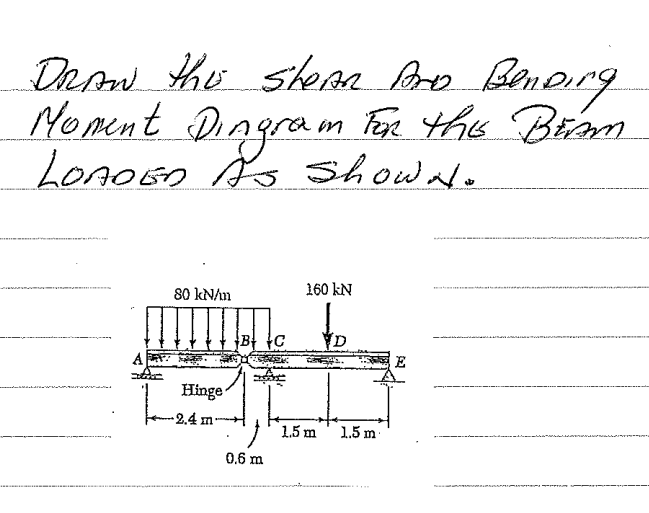 Draw the shear and Bending
Moment Diagram For the Beam
Loaded As Shown.
80 kN/m
160 kN
B
C
D
A
E
Hinge
2.4 m
1.5 m
1.5 m
0.6 m